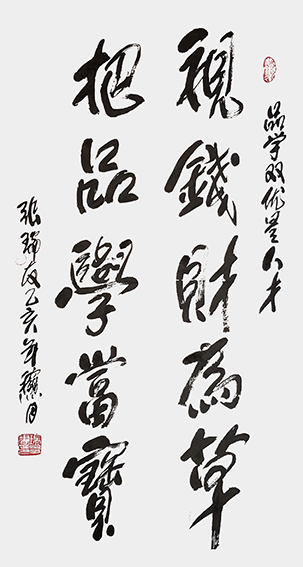 品学双优是人才
視錢財為草
把品學當寶
张瑞友乙亥年臘月